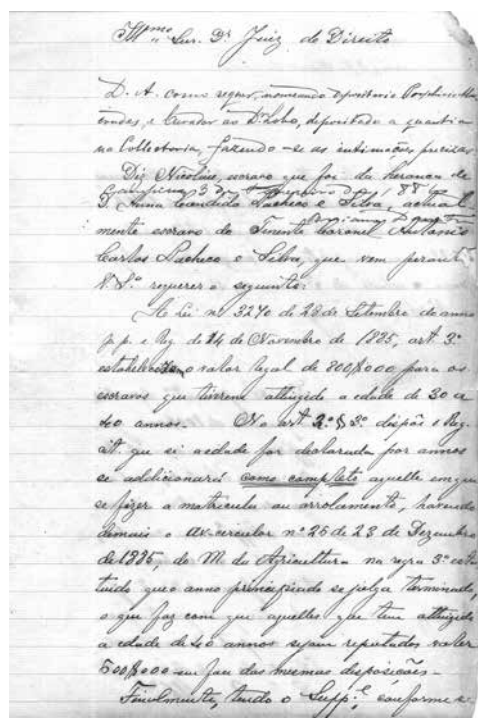 Illmo Snr. Dr Juiz de Direito
D. A. como requer, nomeando depositario Porphirio
e Curador ao Dr Lobo, depositado a quantia
na Collectoria, fazendo-se as intimações precizas
Diz Nicoláu, escravo que foi da herança de
Campinas 3 de de 188
D. Anna Candida Pacheco e Silva, actual
mente escravo do Tenente Coronel Antonio
Carlos Pacheco e Silva, que vem perante
V. Sª requerer o seguinte:
A Lei nº 3270 de 28 de Setembro do anno
p. p. e Reg. de 14 de Novembro de 1885, art 3º
o valor legal de 800$000 para os
escravos que tiverem attingido a edade de 30 a
40 annos. No art 2º § 3º dispõe o Reg.
cit. que si a edade for declarada por annos
se addicionará como completo aquelle em que
se fizer a matricula ou arrolamento, havendo
demais o av. circular nº 25 de 23 de Dezembro
de 1885, do M. da Agricultura na regra 3ª esta
tuido que o anno principiado se julga terminado,
o que faz com que aquelles que tem attingido
a edade de 40 annos sejam reputados valer
500$000 em face das mesmas disposições.
Finalmente, tendo o Suppe, conforme e